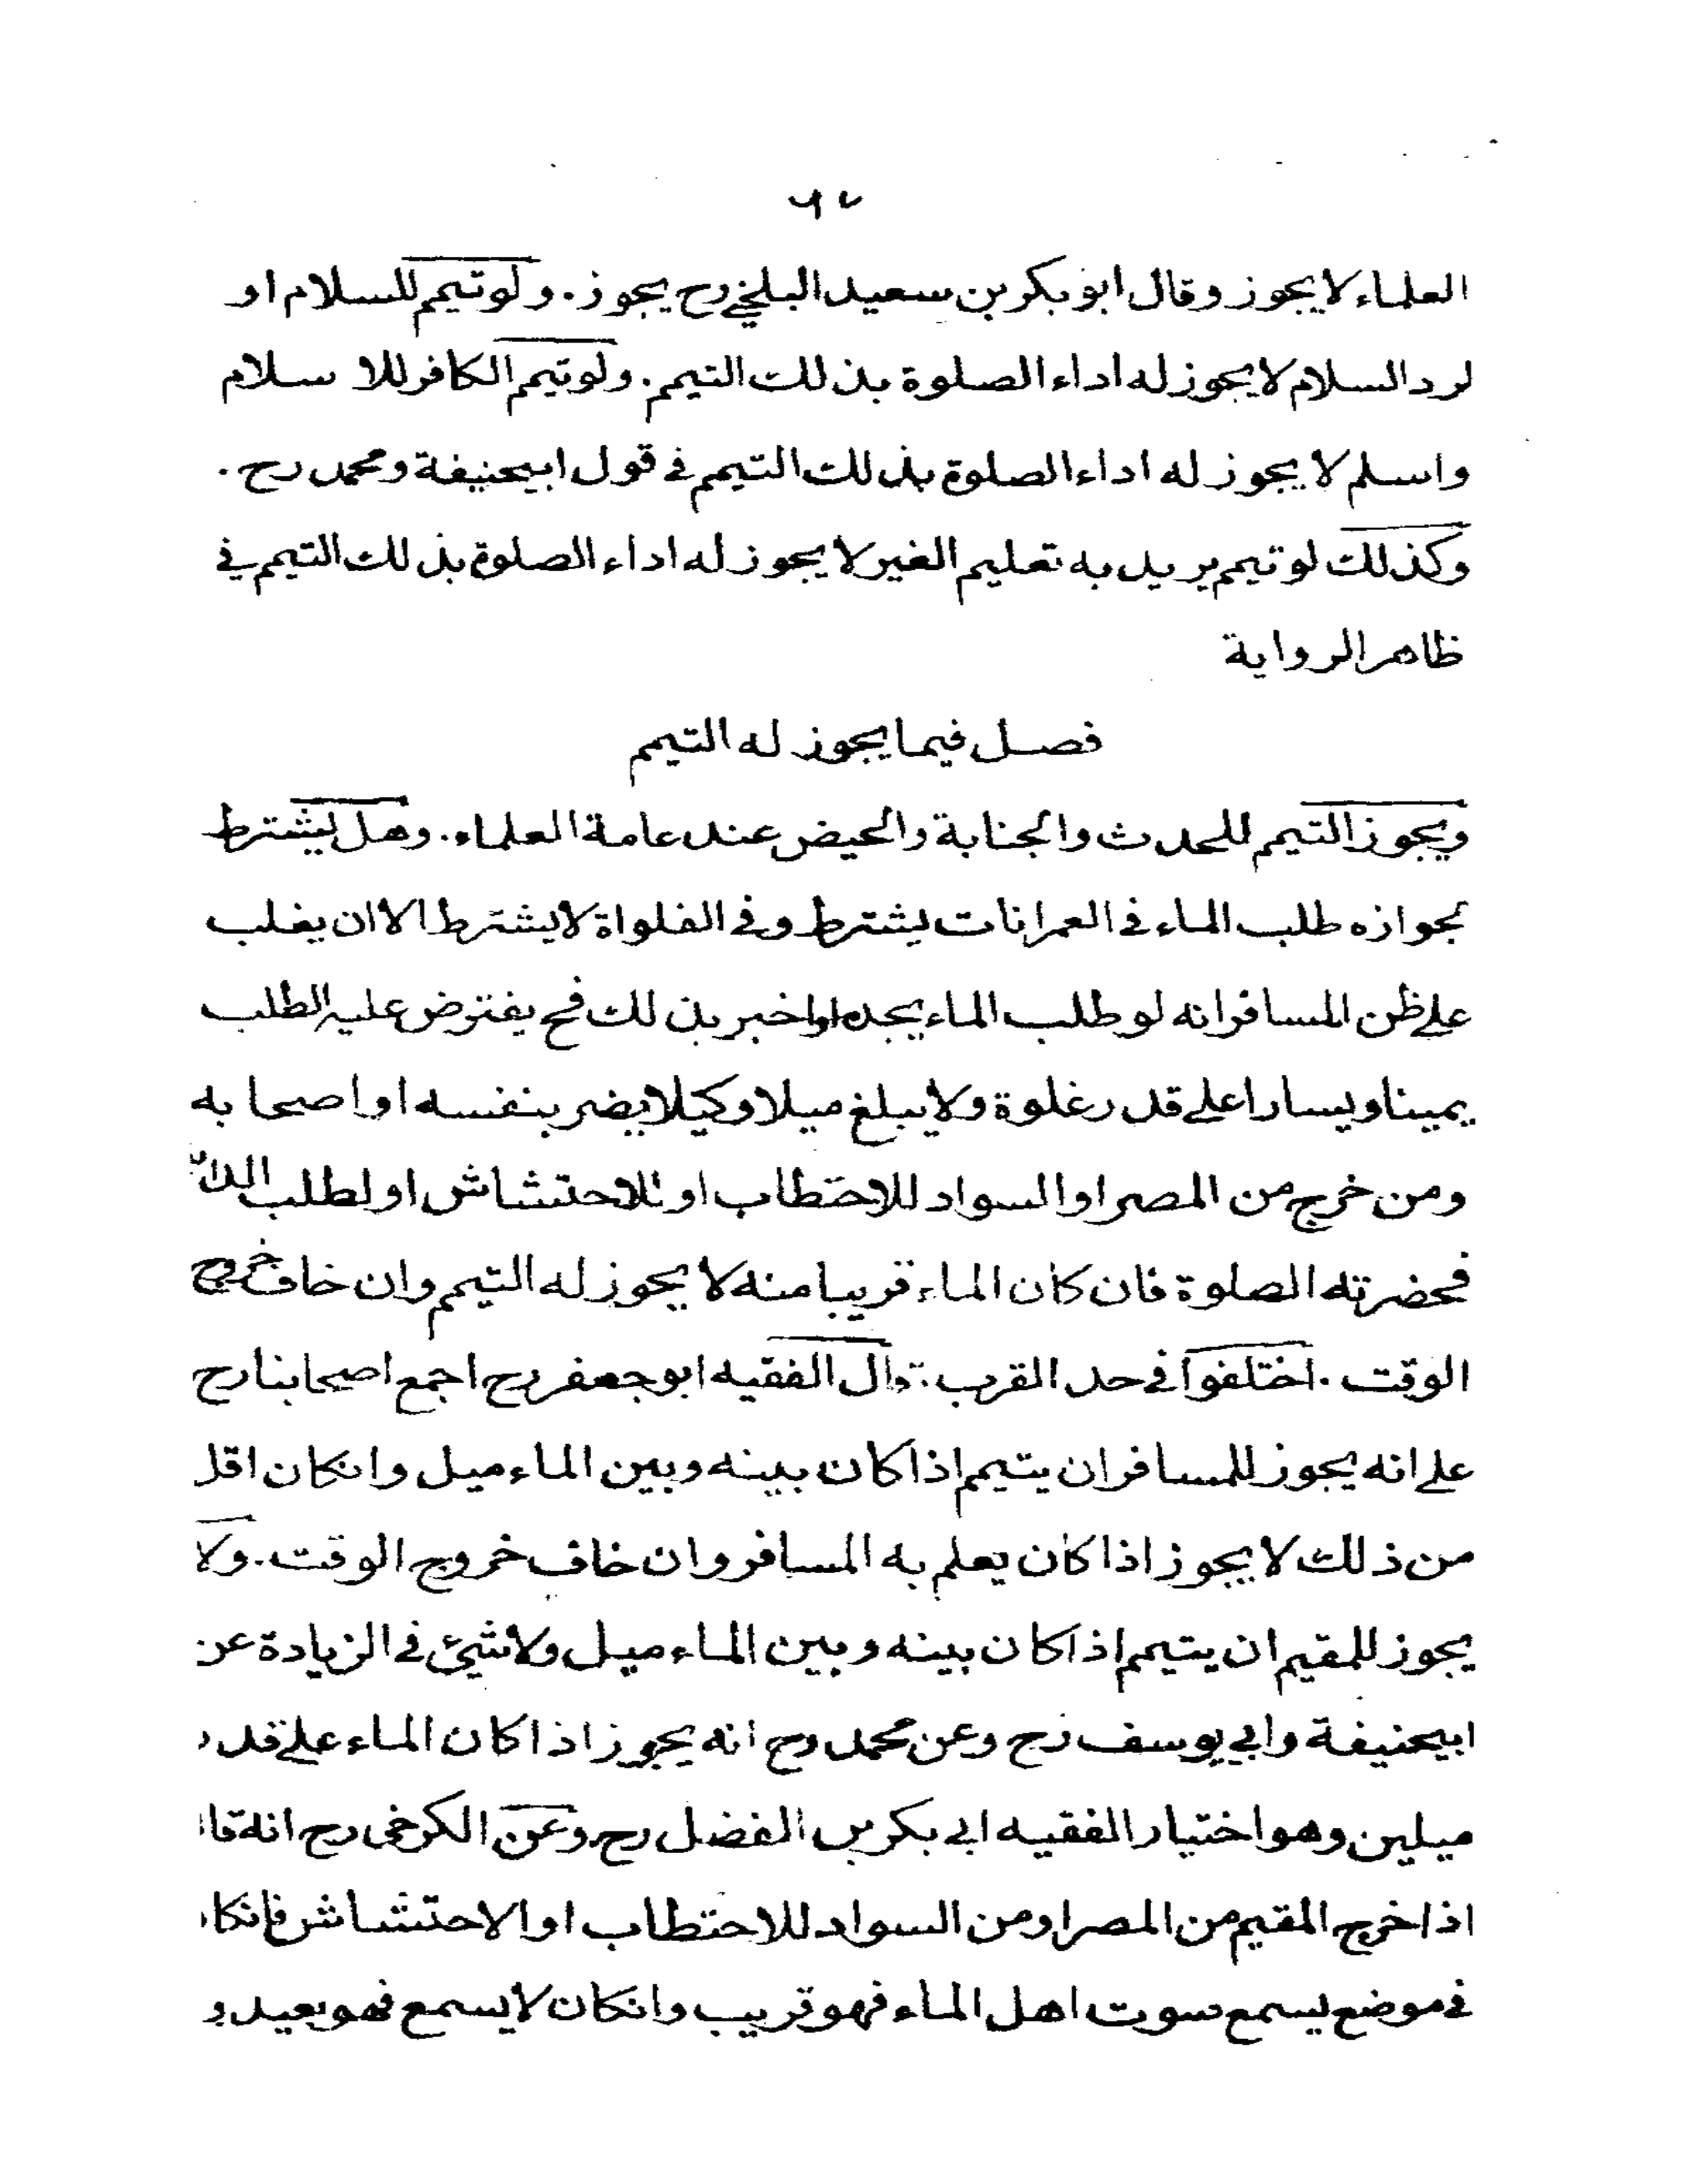 العلماء لا يجوز وقال ابو بكر بن سعيد البلخي رح يجوز. ولو تيمم للسلام او
لرد السلام لا يجوز له اداء الصلوة بذلك التيمم. ولو تيمم الكافر للاسلام
واسلم لا يجوز له اداء الصلوة بذلك التيمم في قول ابيحنيفة ومحمد رح.
وكذلك لو تيمم يريد به تعليم الغير لا يجوز له اداء الصلوة بذلك التيمم في
ظاهر الرواية
فصل فيما يجوز له التيمم
ويجوز التيمم للحدث والجنابة والحيض عند عامة العلماء. وهل يشترط
لجوازه طلب الماء في العمرانات يشترط وفي الفلواة لا يشترط الا ان يغلب
على ظن المسافر انه لو طلب الماء يجده او اخبر بذلك فح يفترض عليه الطلب
يمينا ويسارا على قدر غلوة ولا يبلغ ميلا وكيلا يضر بنفسه او اصحابه
ومن خرج من المصر او السواد للاحتطاب او للاحتشاش او لطلب
فحضرته الصلوة فان كان الماء قريبا منه لا يجوز له التيمم وان خاف خروج
الوقت. اختلفوا في حد القرب: قال الفقيه ابو جعفر رح اجمع اصحابنا رح
على انه يجوز للمسافر ان يتيمم اذا كان بينه وبين الماء ميل وانكان اقل
من ذلك لا يجوز اذا كان يعلم به المسافر وان خاف خروج الوقت. ولا
يجوز للمقيم ان يتيمم اذا كان بينه وبين الماء ميل ولا شيئ في الزيادة عن
ابيحنيفة وابي يوسف رح وعن محمد رح انه يجوز اذا كان الماء على قدر
ميلين وهو اختيار الفقيه ابي بكر بن الفضل رح وعن الكرخي رح انه قا
اذا خرج المقيم من المصر او من السواد للاحتطاب او الاحتشاش فانكا
في موضع يسمع سوت اهل الماء فهو قريب وانكان لا يسمع فهو بعيد و